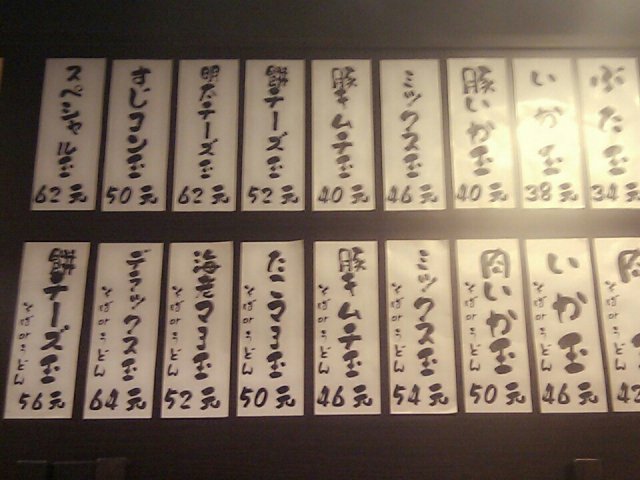 ぶた玉
34元
いか玉
38元
豚いか玉
40元
ミックス玉
46元
豚キムチ玉
40元
餅チーズ玉
52元
明太チーズ玉
62元
すじコン玉
50元
スペシャル玉
62元
42
いか玉
そばかうどん
46元
肉いか玉
そばかうどん
50元
ミックス玉
そばかうどん
54元
豚キムチ玉
そばかうどん
46元
たこマヨ玉
そばかうどん
50元
海老マヨ玉
そばかうどん
52元
デラックス玉
そばかうどん
64元
餅チーズ玉
そばかうどん
56元